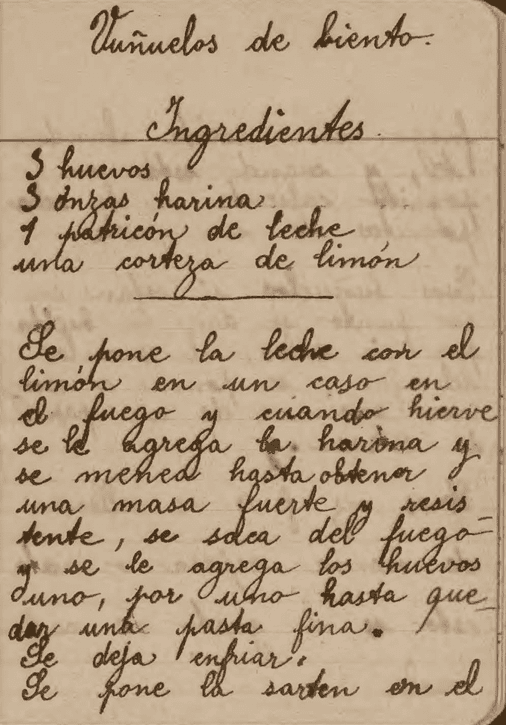 Vuñuelos de biento.
Ingredientes.
3 huevos
3 onzas harina
1 patricón de leche
una corteza de limón
Se pone la leche con el
limón en un caso en
el fuego y cuando hierve
se le agrega la harina y
se menea hasta obtener
una masa fuerte y resis-
tente, se saca del fuego
y se le agrega los huevos
uno, por uno hasta que-
dar una pasta fina.
Se deja enfriar.
Se pone la sarten en el